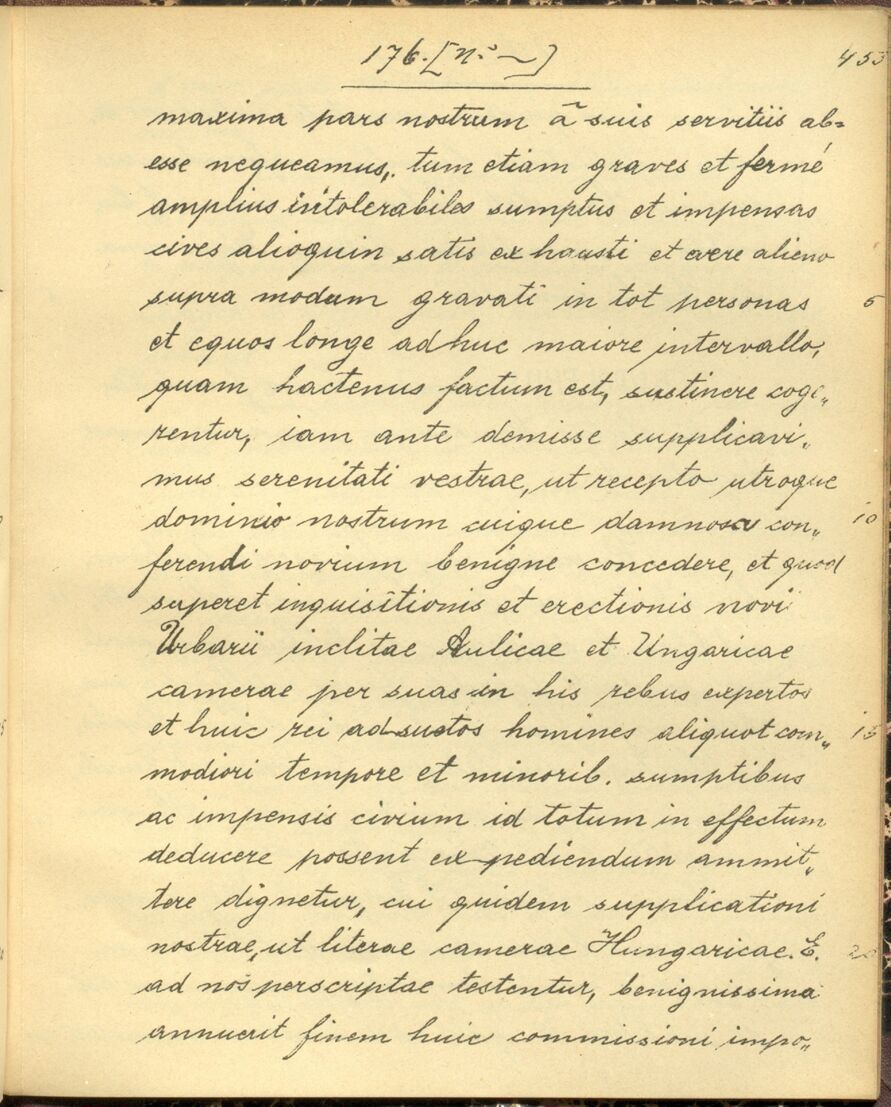 176. [Nº —] 453
maxima pars nostrum ã suis servitiis ab=
esse nequeamus, tum etiam graves et fermé
amplius intolerabiles sumptus et impensas
cives alioquin satis exhausti et aere alieno
supra modum gravati in tot personas 5
et equos longe adhuc maiore intervallo,
quam hactenus factum est, sustinere coge„
rentur, iam ante demisse supplicavi„
mus serenitati vestrae, ut recepto utroque
dominio nostrum cuique damnosa con„ 10
ferendi novium benigne concedere, et quod
superet inquisitionis et erectionis novi
Urbarii inclitae Aulicae et Ungaricae
camerae per suas in his rebus expertos
et huic rei adsuetos homines aliquot com„ 15
modiori tempore et minorib. sumptibus
ac impensis civium id totum in effectum
deducere possent expediendum ammit„
tere dignetur, cui quidem supplicationi
nostrae, ut literae camerae Hungaricae. E. 20
ad nos perscriptae testentur, benignissima
annuerit finem huic commissioni impo„